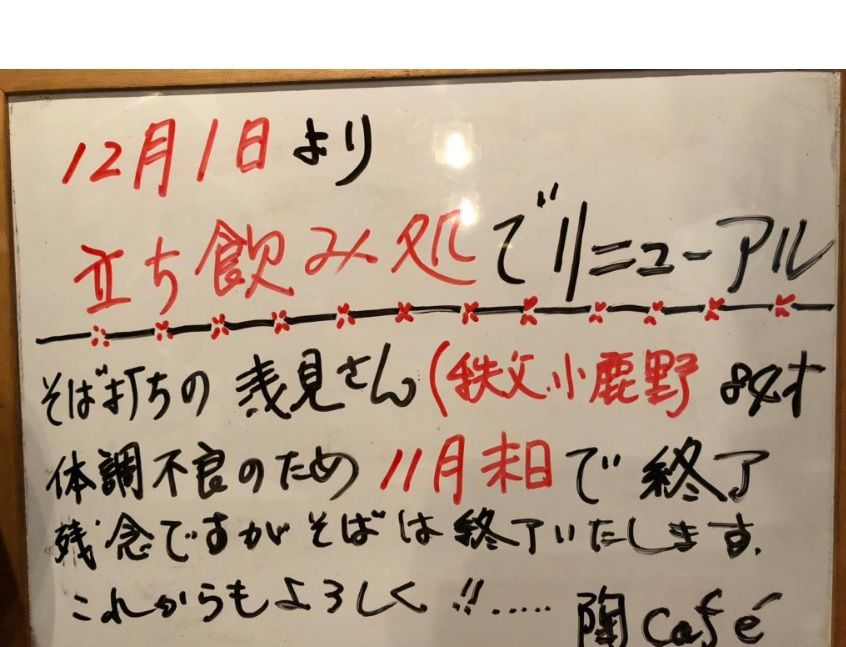 12月1日より
立ち飲み処でリニューアル
そば打ちの 浅見さん(秩父小鹿野 84才
体調不良のため 11月末日で終了
残念ですがそばは終了いたします.
これからもよろしく!!.....
陶Café